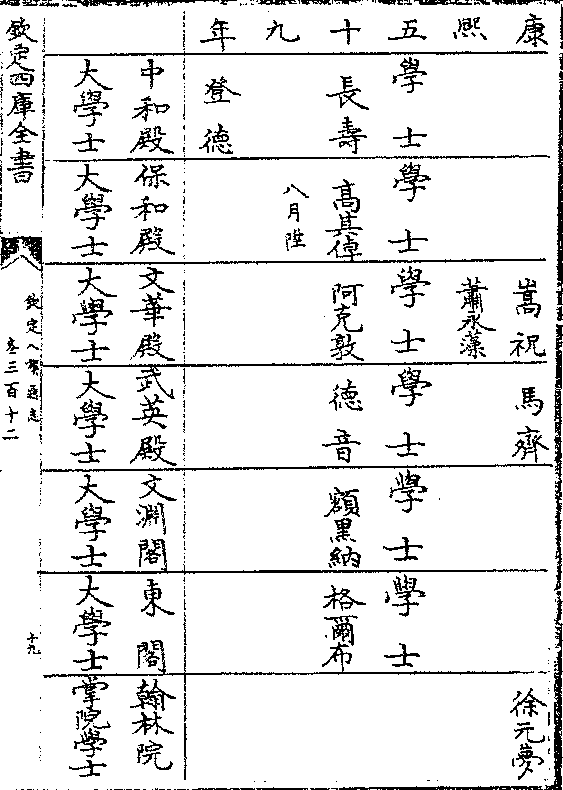 康 嵩祝 馬齊 徐元夢
熙 蕭永藻
五 學士 學士 學士 學士 學士 學士
十 長壽 高其倬 阿克敦 德音 額黑納 格爾布
九 八月陞
年 登德
中和殿 保和殿 文華殿 武英殿 文淵閣 東閣 翰林院
大學士 大學士 大學士 大學士 大學士 大學士 掌院學士
欽定四庫全書
欽定八旗通志
卷三百十二
十九